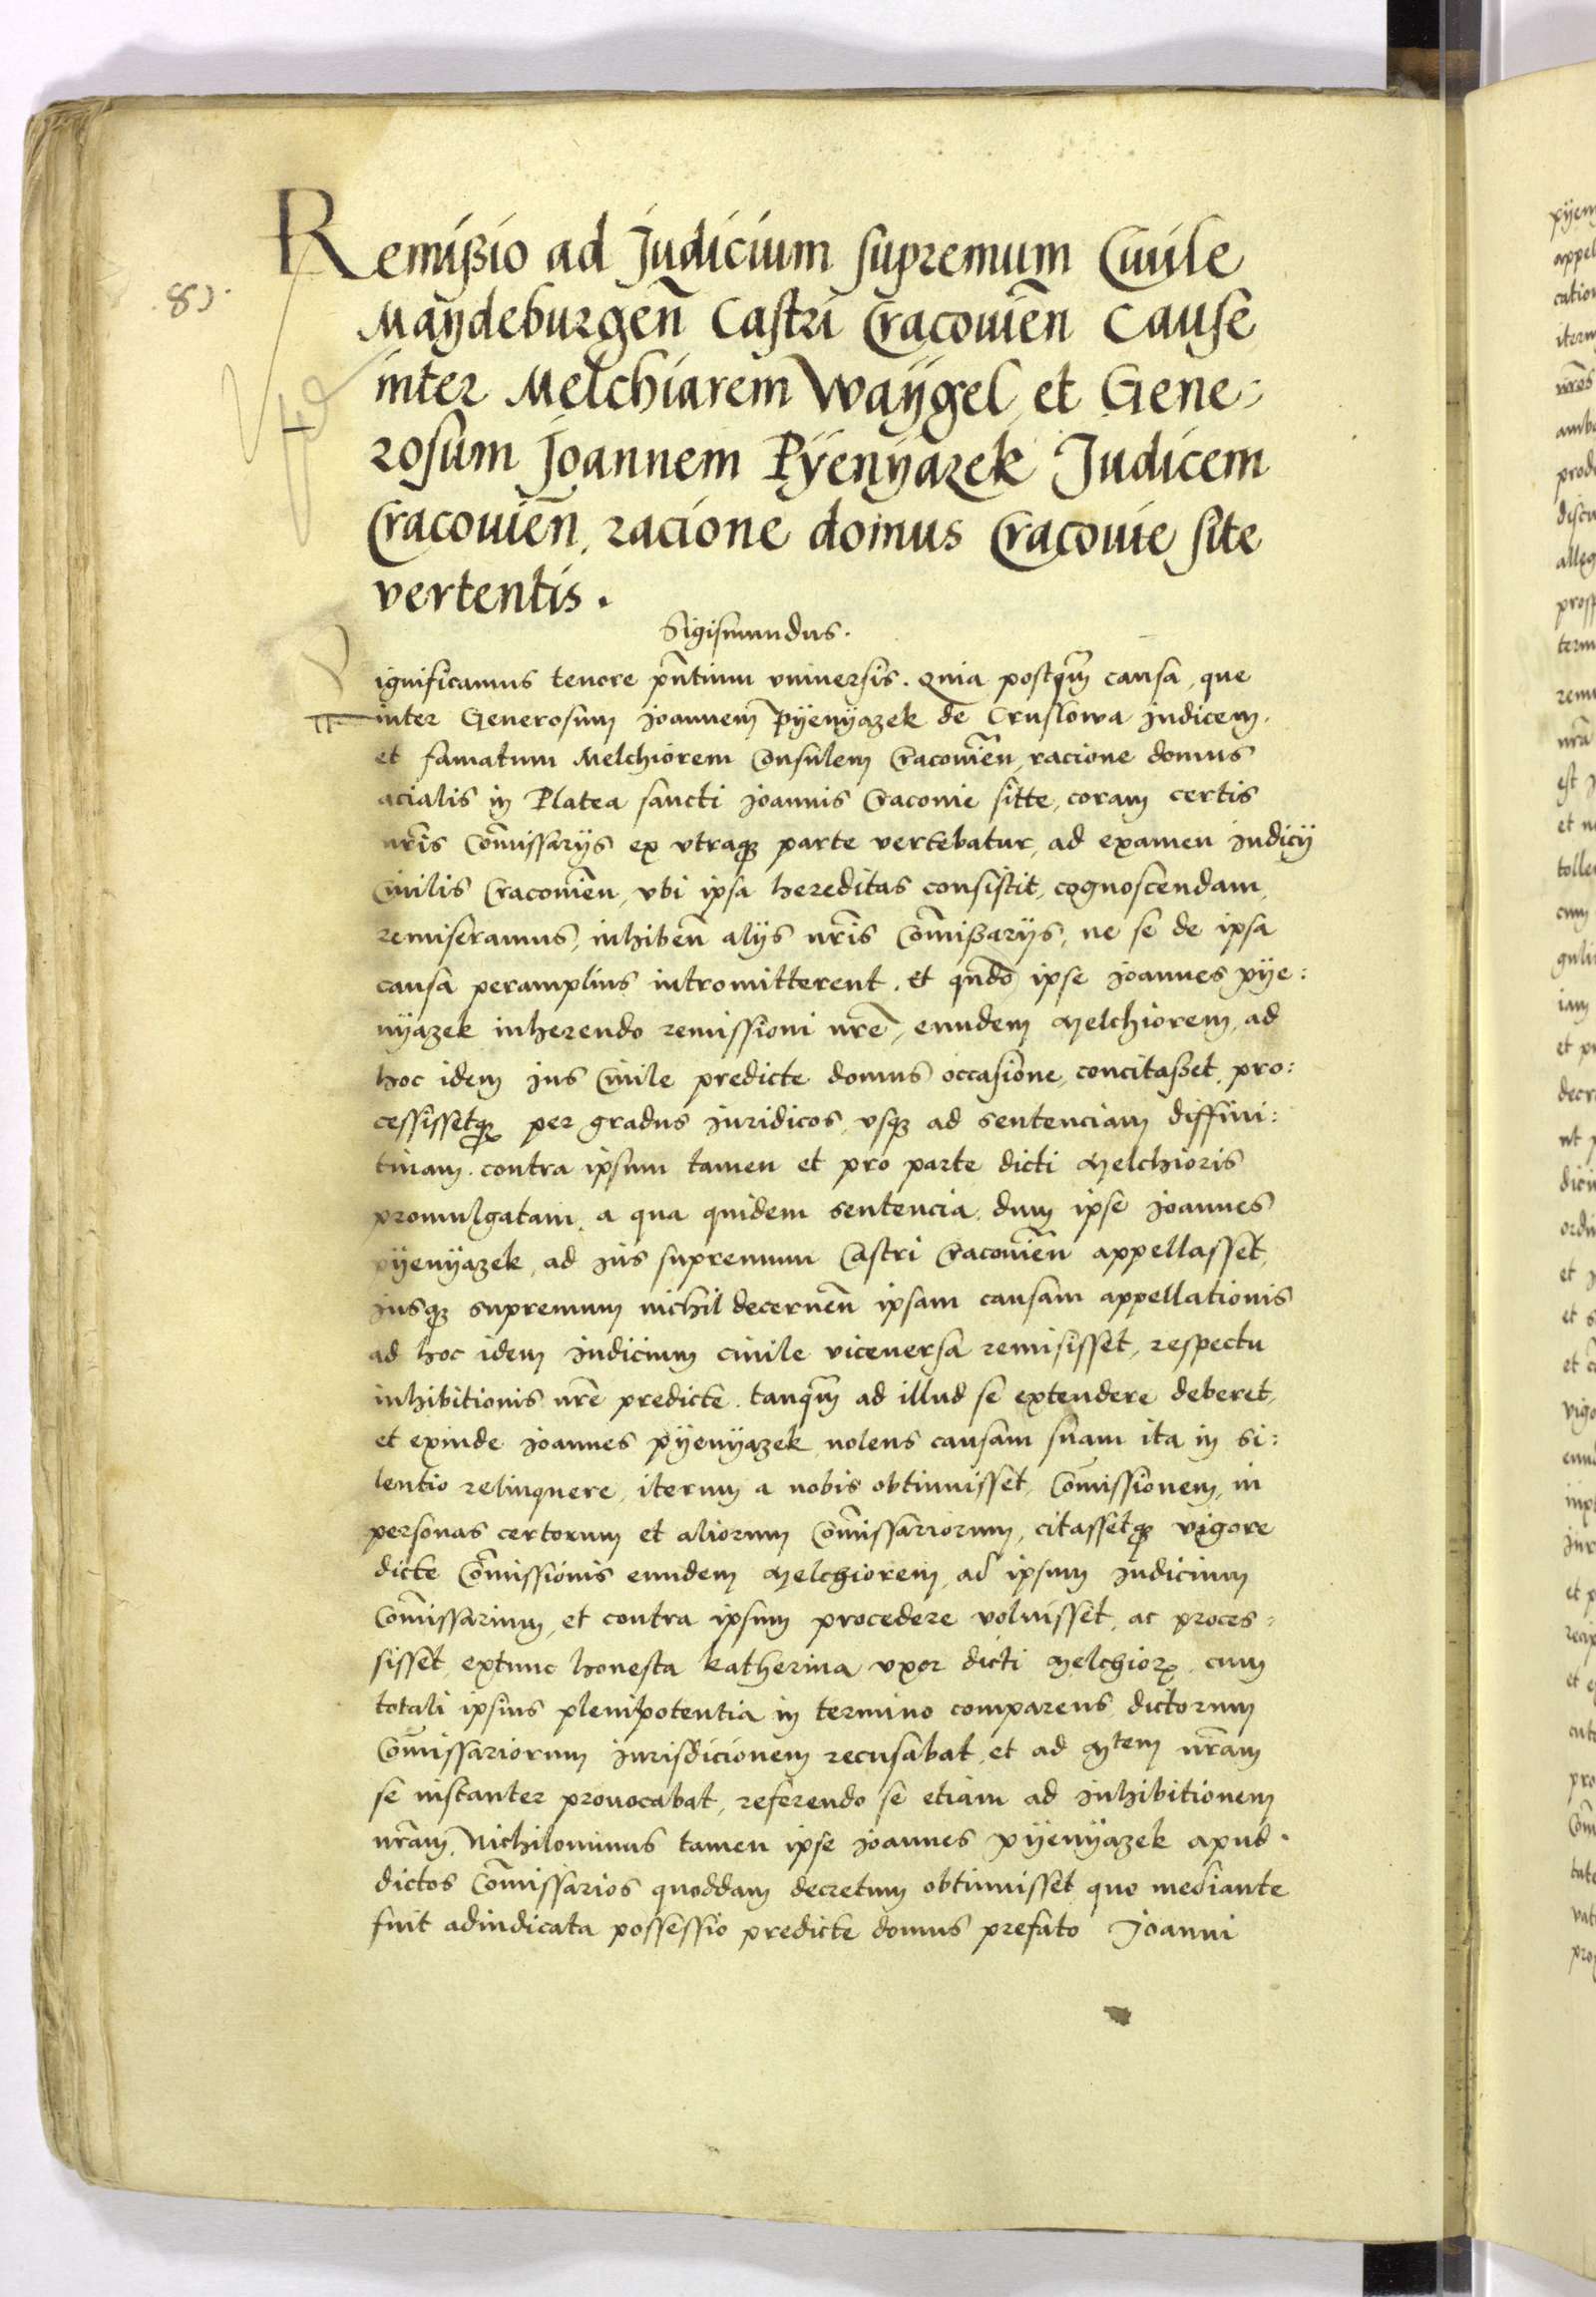 Remißio ad Judicium supremum Ciuile
Maydeburgeñ Castri Cracouieñ Cause
inter Melchiarem Waÿgel et Gene:
rosum Joannem Pÿenÿazek Judicem
Cracouieñ. racione domus Cracouie site
vertentis.
Sigismundus.
ignificamus tenore pñtium vniuersis. Quia postqm̃ causa, que
inter Generosum Joannem Pÿenÿazek de Cruslowa Judicem.
et famatum Melchiorem Consulem Cracouieñ, racione domus
acialis in Platea sancti Joannis Cracouie sitte, coram certis
nr̃is Com̃issarijs ex vtraq parte vertebatur, ad examen Judicij
Ciuilis Cracouieñ, vbi ipsa hereditas consistit, cognoscendam,
remiseramus, inhibeñ alijs nr̃is Com̃ißarijs, ne se de ipsa
causa peramplius intromitterent. et qñdo ipse Joannes pÿe:
nÿazek inherendo remissioni nr̃e, eundem Melchiorem, ad
hoc idem Jus Ciuile predicte domus occasione, concitaßet. pro:
cessissetq per gradus Juridicos, vsq ad sentenciam diffini:
tiuam. contra ipsum tamen et pro parte dicti Melchioris
promulgatam. a qua quidem sentencia. dum ipse Joannes
pÿenÿazek, ad Jus supremum Castri Cracouieñ appellasset,
Jusq supremum nichil decerneñ ipsam causam appellationis
ad hoc idem Judicium ciuile viceuersa remisisset, respectu
inhibitionis nr̃e predicte. tanqm̃ ad illud se extendere deberet,
et exinde Joannes pÿenÿazek nolens causam suam ita in si:
lentio relinquere, iterum a nobis obtinuisset, Com̃issionem, in
personas certorum et aliorum Com̃issariorum, citassetq vigore
dicte Com̃issionis eundem Melchiorem ad ipsum Judicium
Com̃issarium, et contra ipsum procedere voluisset, ac proces:
sisset, extunc honesta Katherina vxor dicti Melchioꝝ, cum
totali ipsius plenipotentia in termino comparens dictorum
Com̃issariorum Jurisdicionem recusabat, et ad Mtem nr̃am
se instanter prouocabat, referendo se etiam ad Inhibitionem
nr̃am. Nichilominus tamen ipse Joannes pÿenÿazek apud
dictos Com̃issarios quoddam decretum obtinuisset quo mediante
fuit adiudicata possessio predicte domus prefato Joanni